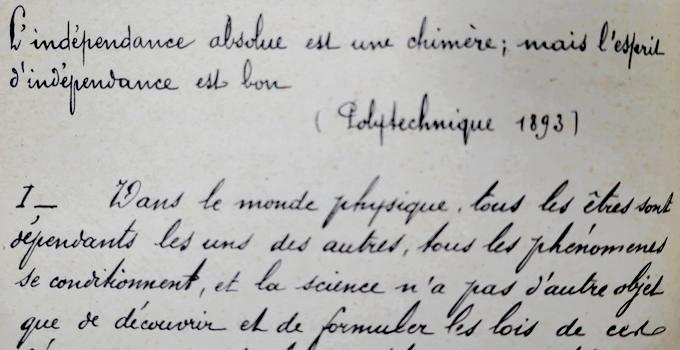 L'indépendance absolue est une chimère ; mais l'esprit
d'indépendance est bon
( Polytechnique 1893 )
I_ Dans le monde physique, tous les êtres sont
dépendants les uns des autres, tous les phénomènes
se conditionnent, et la science n'a pas d'autre objet
que de découvrir et de formuler les lois de ces